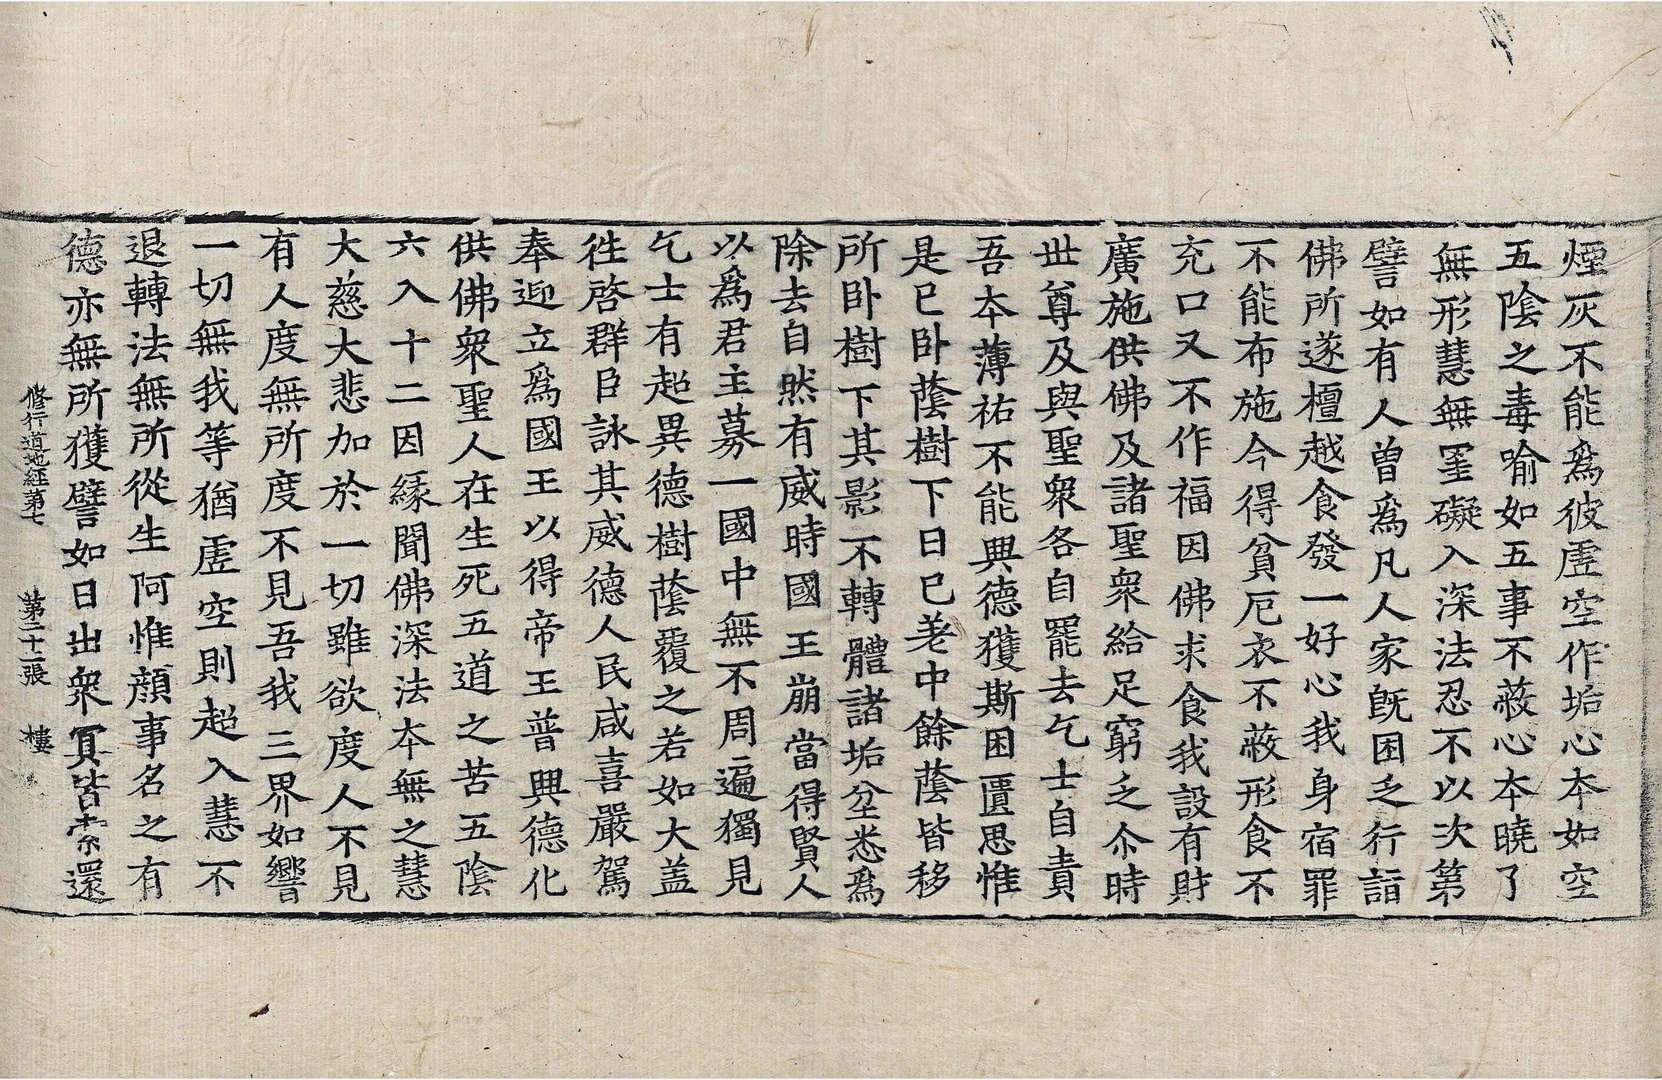 煙灰不能爲彼虛空作垢心本如空
五陰之毒喻如五事不蔽心本曉了
無形慧無罣礙入深法忍不以次第
譬如有人曽爲凡人家旣困乏行詣
佛所遂檀越食發一好心我身宿罪
不能布施今得貧厄衣不蔽形食不
充口又不作福因佛求食我設有財
廣施供佛及諸聖衆給足窮乏尒時
世尊及與聖衆各自罷去乞士自責
吾本薄祐不能興德獲斯困匱思惟
是已卧蔭樹下日已差中餘蔭皆移
所卧樹下其影不轉體諸垢坌悉爲
除去自然有威時國王崩當得賢人
以爲君主募一國中無不周遍獨見
乞士有超異德樹蔭覆之若如大盖
徃啓群臣詠其威德人民咸喜嚴駕
奉迎立爲國王以得帝王普興德化
供佛衆聖人在生死五道之苦五陰
六入十二因緣聞佛深法本無之慧
大慈大悲加於一切雖欲度人不見
有人度無所度不見吾我三界如響
一切無我等猶虛空則超入慧不
退轉法無所從生阿惟顔事名之有
德亦無所獲譬如日出衆冥皆索還
修行道地經第七 第二十一張 樓